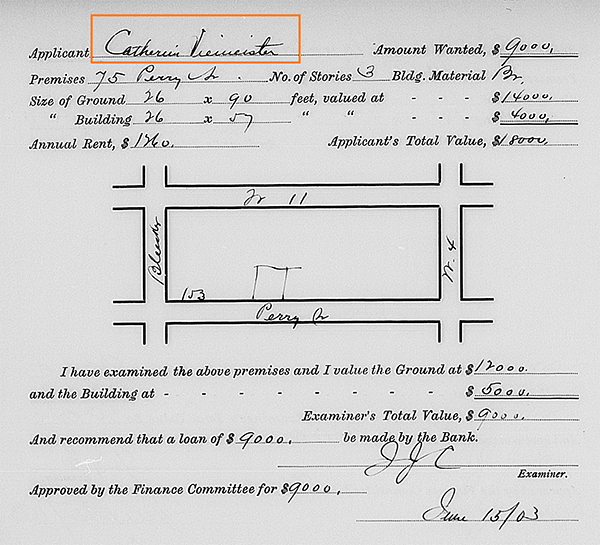 Applicant Catherin Viemeister Amount Wanted, $ 9000,
Premises 75 Perry St. No. of Stories 3 Bldg. Material Br.
Size of Ground 26 x 90 feet, valued at - - - $ 14000.
" Building 26 x 57 " " - - - $ 4000,
Annual Rent, $ 1260. Applicant's Total Value, $ 18000
W 11
Bleecker
W. 4
153
Perry St
I have examined the above premises and I value the Ground at $ 12000.
and the Building at - - - - - - - - $ 5000.
Examiner's Total Value, $ 9000.
And recommend that a loan of $ 9000, be made by the Bank.
J J C
Examiner.
Approved by the Finance Committee for $ 9000,
June 15/03